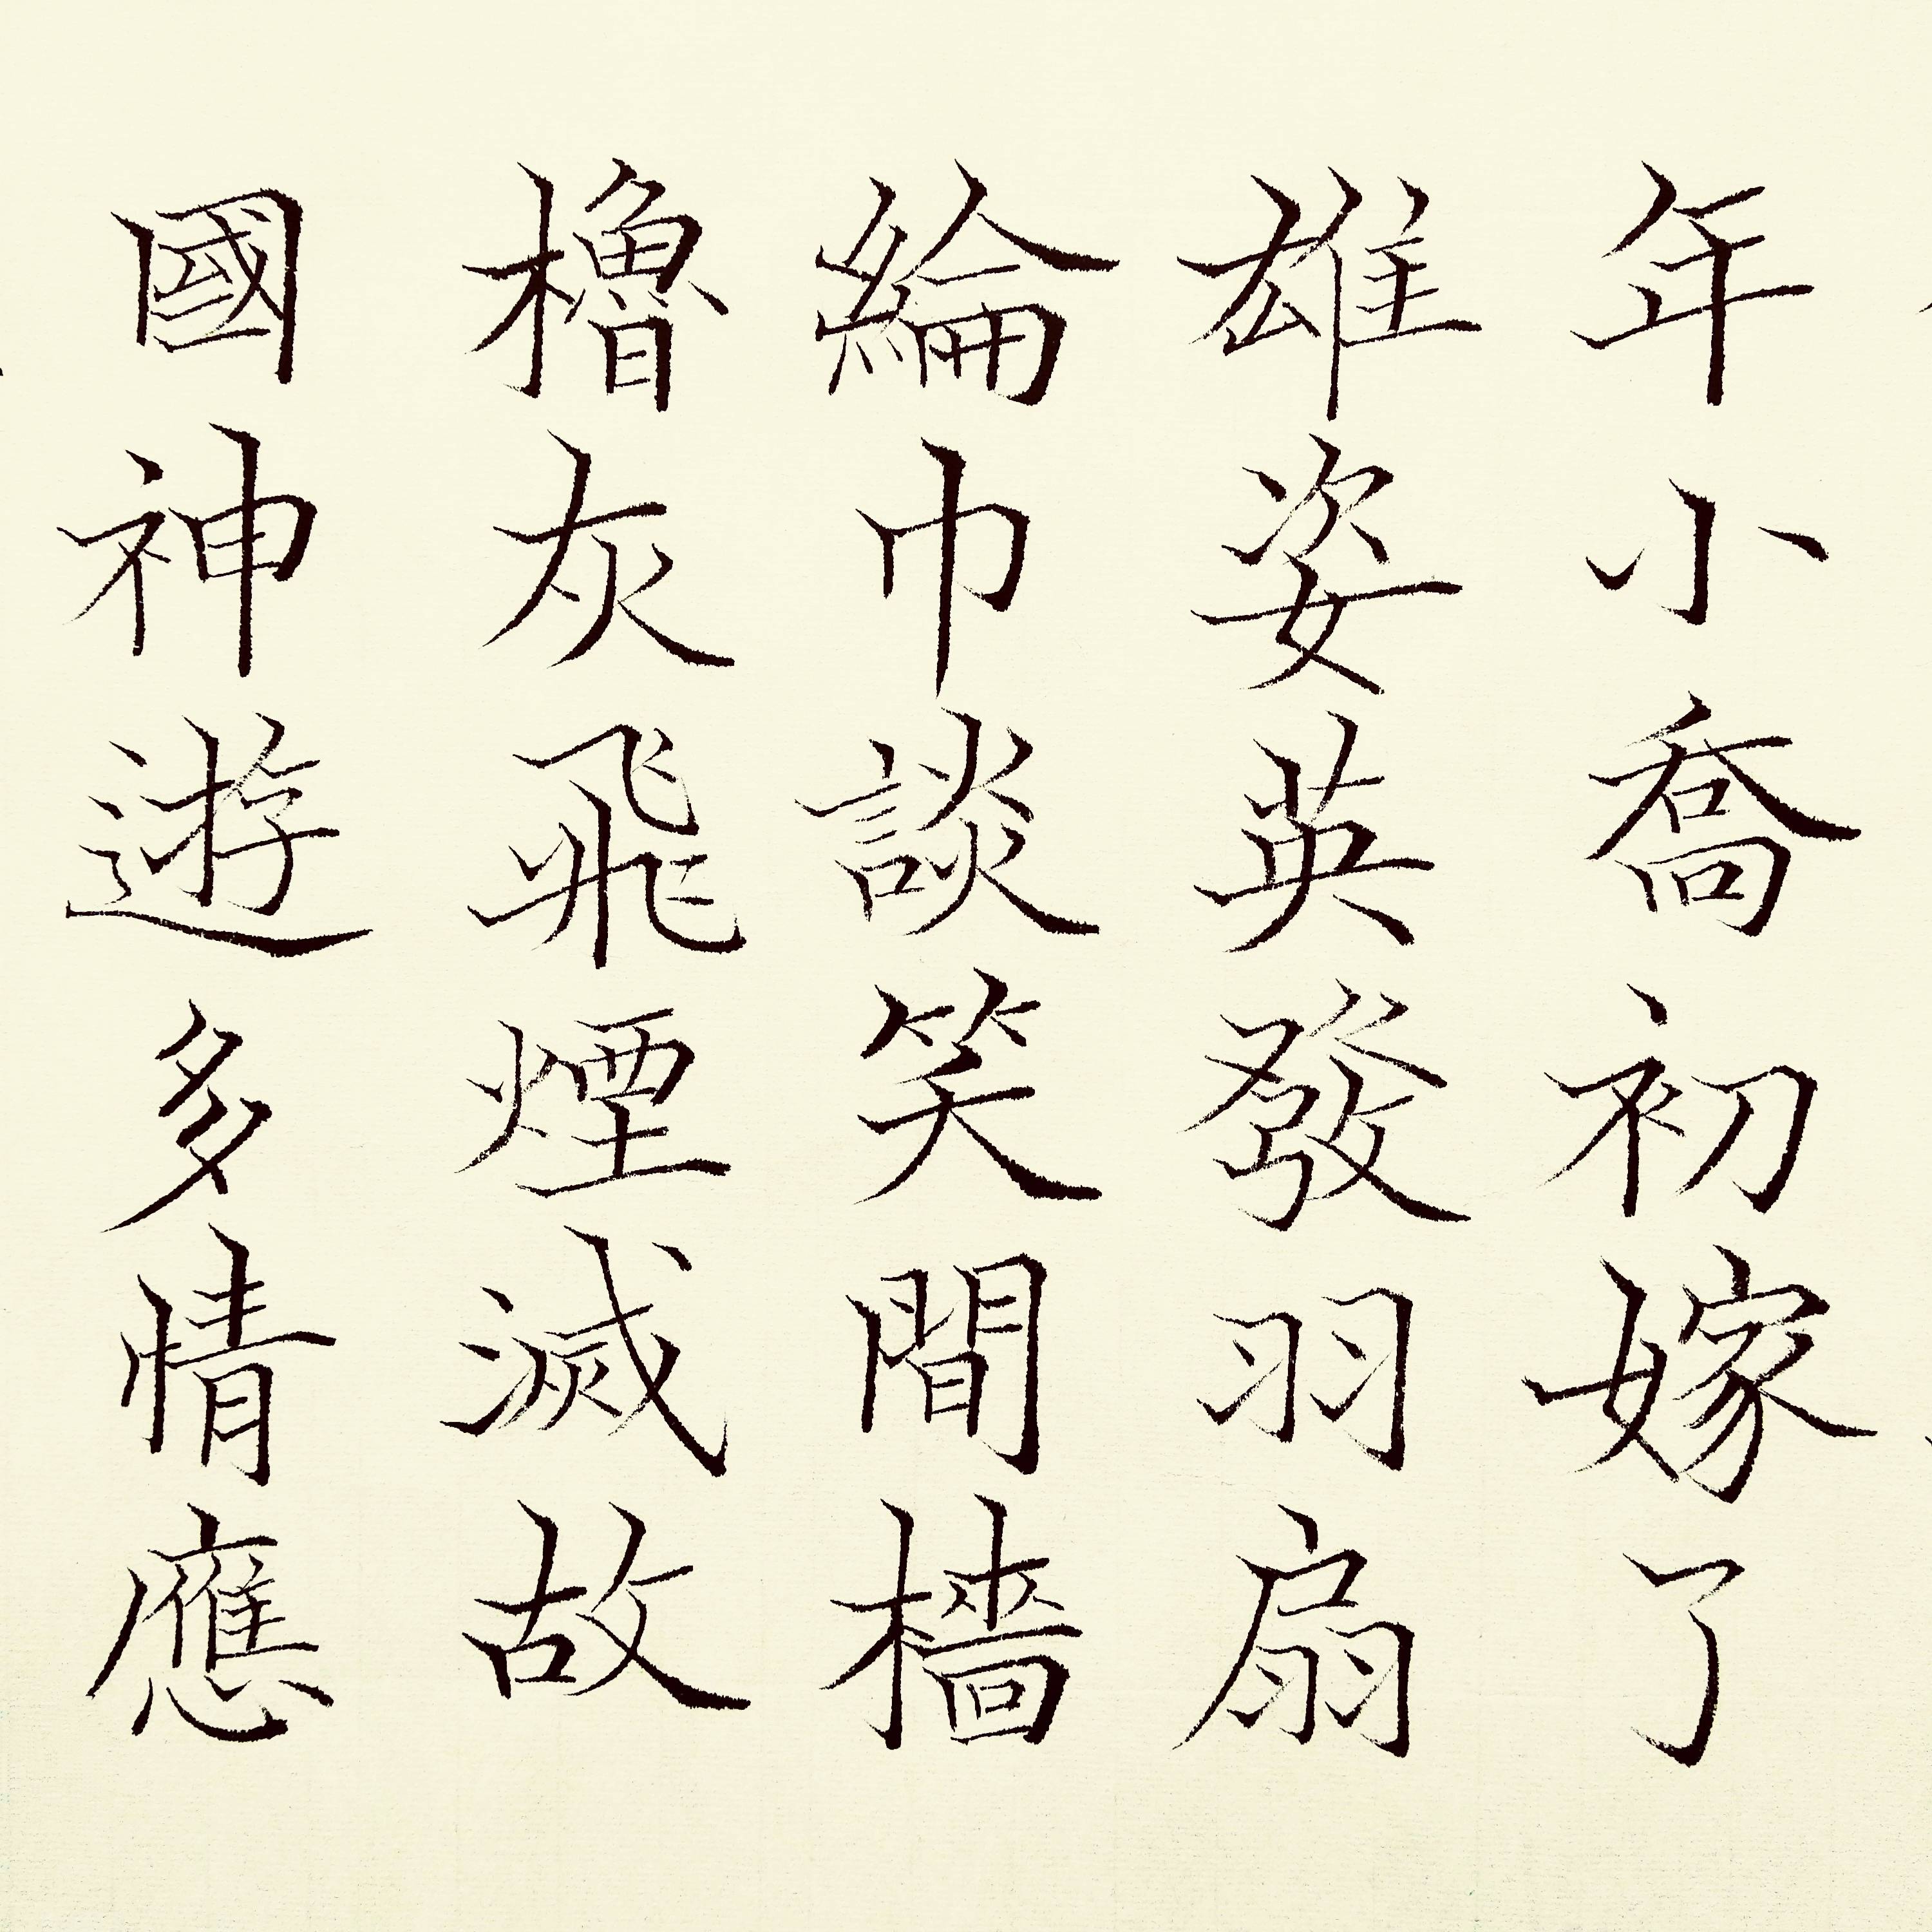 年小喬初嫁了
雄姿英發羽扇
綸巾談笑間檣
櫓灰飛煙滅故
國神遊多情應